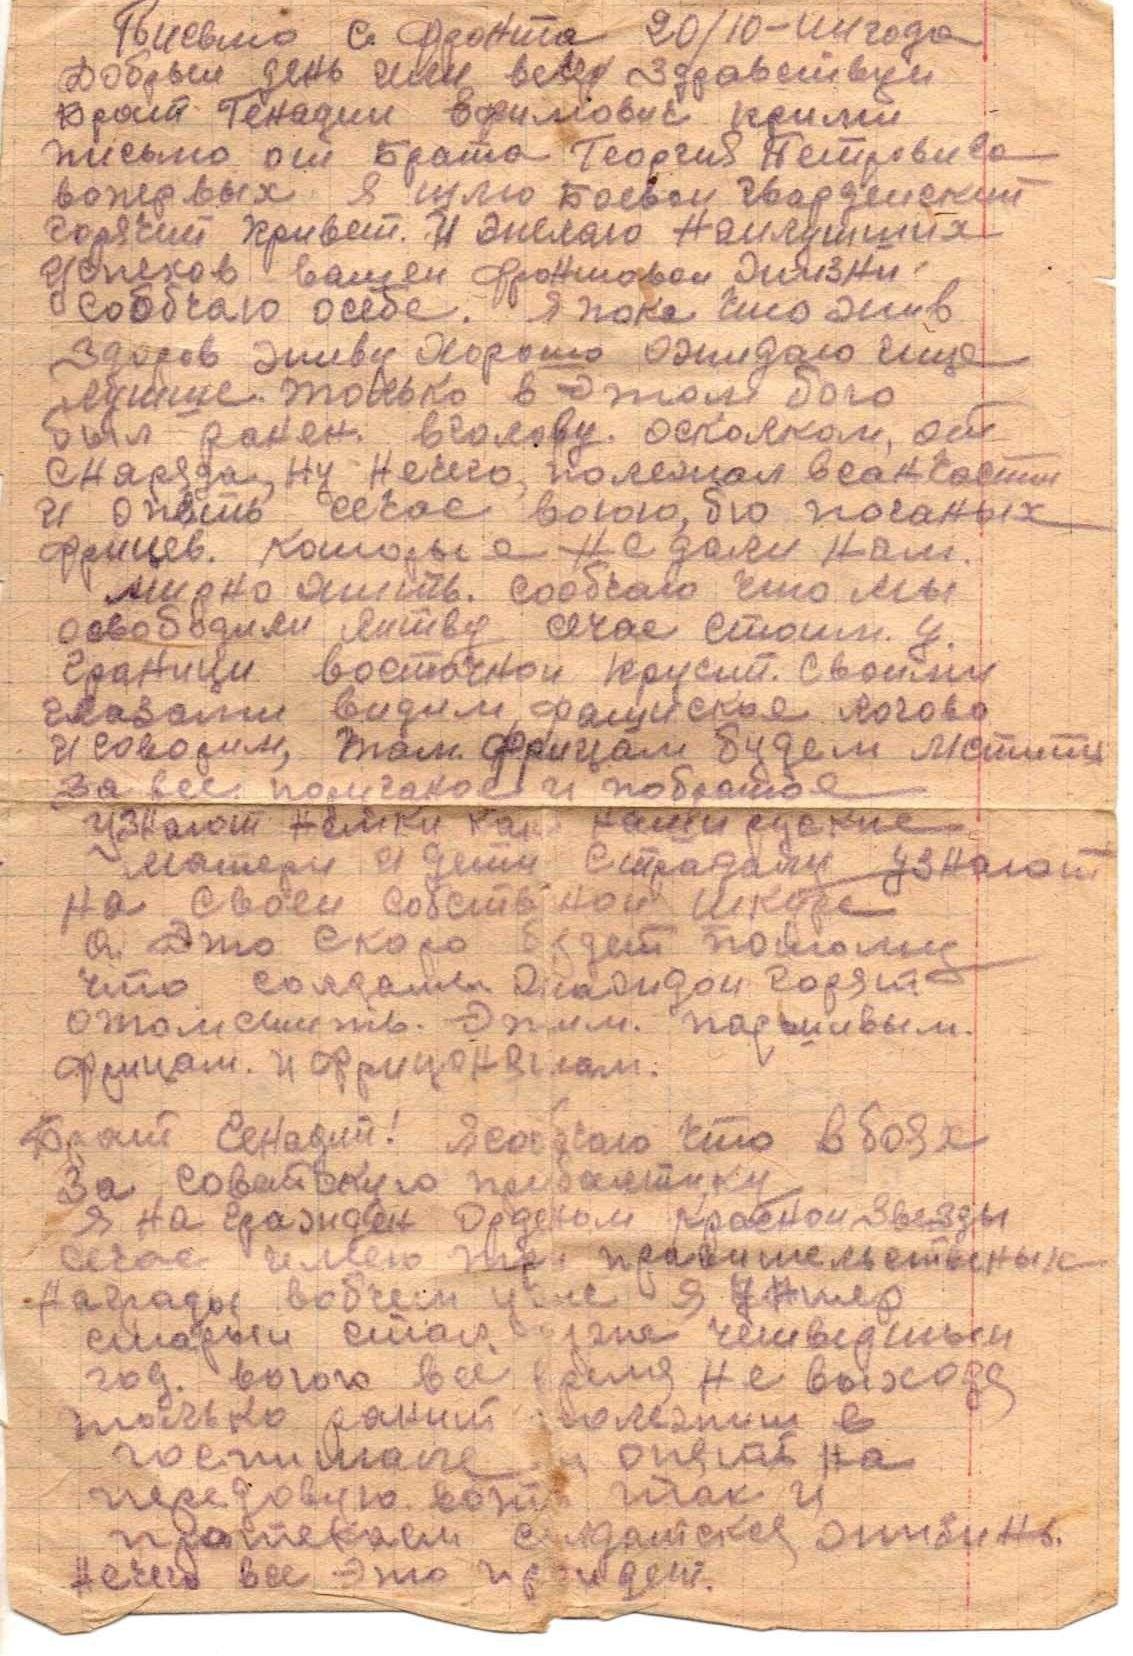 Письмо с Фронта 20/10-44 года
Добрыи день или вечер Здравствуи
Брат Генадии Ефимович прими
письмо от Брата Георгия Петровича
вопервых я шлю Боевои гвардеиский
горячий привет. И желаю Наилутших
Успехов вашеи фронтовои жизни!
Сообчаю осебе. Я пока что жив
Здоров живу Хорошо ожидаю чище
лутше. только в Этом
был ранен. вголову. осколком, от
снаряда, ну Нечего, полежал всанчасти
и опять счас воюю, бю поганых
фрицев. которые Не дали Нам.
мирно жить. сообчаю что мы
освободили литву счас стоим. у.
граници восточнои прусии. своими
глазами видим, фашиское логово
и говорим, там. фрицам будем мстить
За все поруганое и побратое
узнают немки как наши руские
матери и дети страдали узнают
на своеи собственои шкуре
а Это скоро будет потому
что солдаты жаждои горят
отомстить. Этим. паршивым.
фрицам. и фриценятам.
Брат Генадий! Я сообчаю что в боях
За советскую прибалтику
я награжден Орденом Красной Звезды
счас имею три правительственых
награды вобчем уже я Унтер
старыи стал. четвертыи
год. воюю все время не выходя
только ранит полежиш в
госпитале и опять на
передовую. вот так и
протекает солдатская жизинь.
нечего все Это проидет.